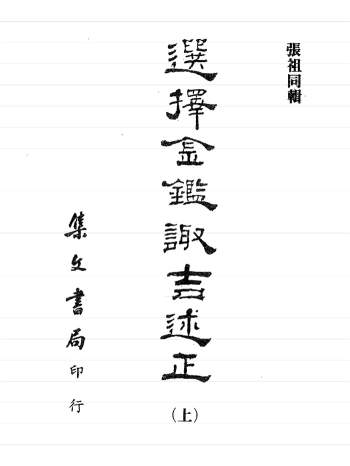 張祖同輯
選擇金鑑諏吉述正
（上）
集文書局印行